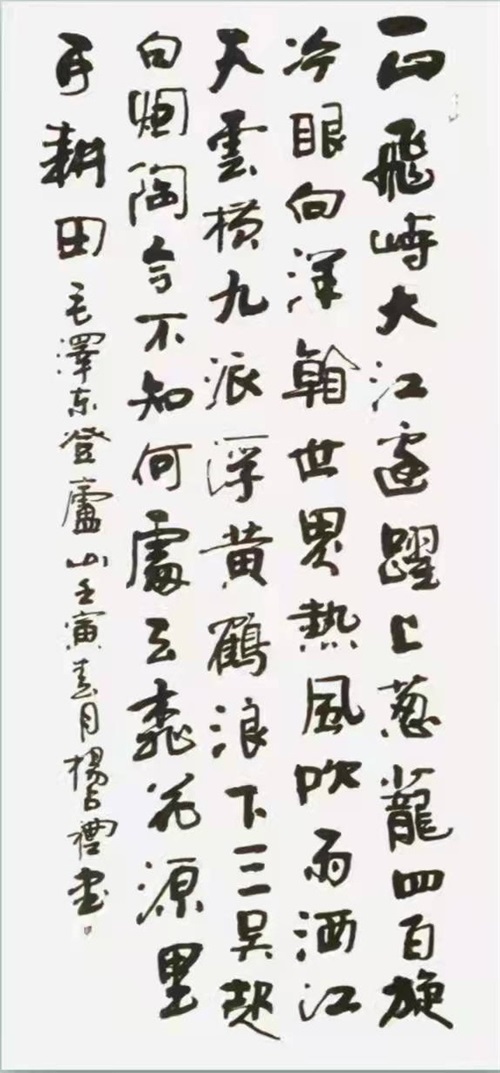 一山飛峙大江邊躍上葱蘢四百旋
冷眼向洋看世界熱風吹雨洒江
天雲横九派浮黄鶴浪下三吴起
白烟陶令不知何處去桃花源里
可耕田
毛澤东登廬山壬寅春月楊占禮書